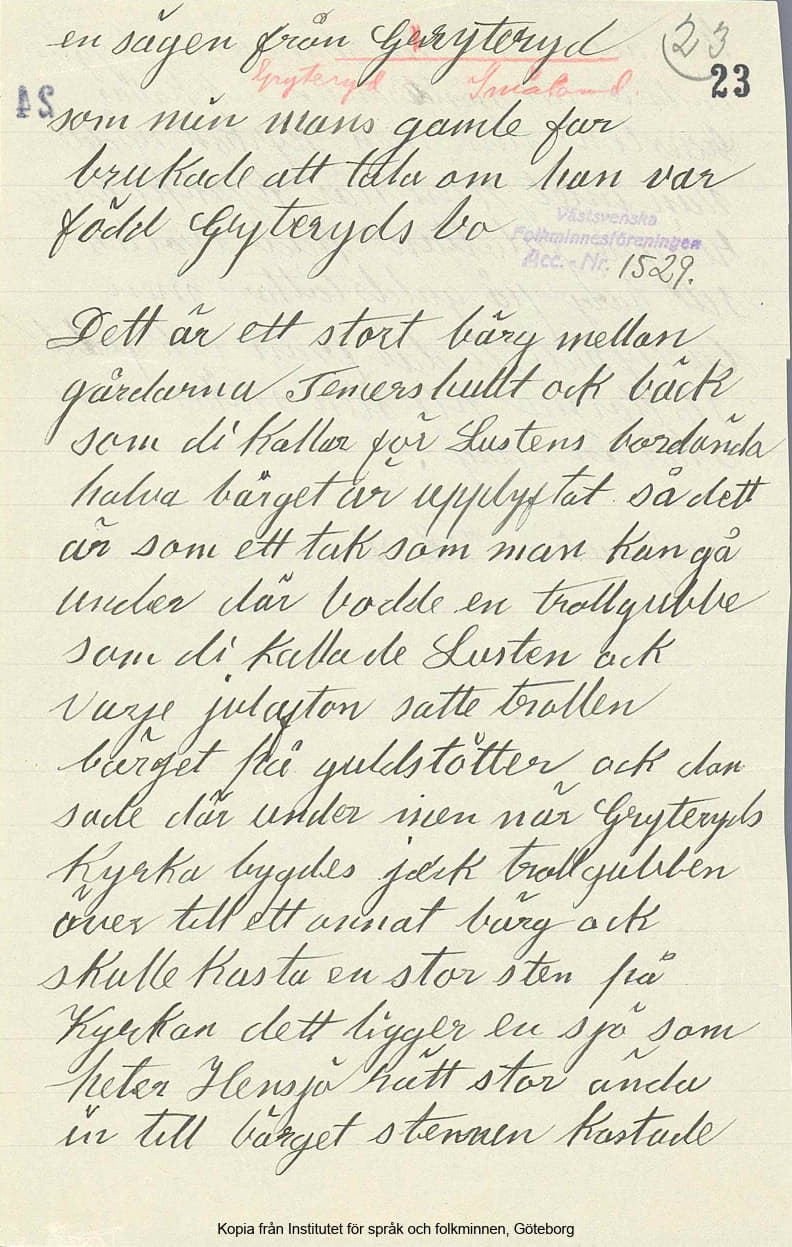 en sägen från Gryteryd
23
Gryteryd Småland.
23
24
som min mans gamle far
brukade att tala om han var
född Gryteryds bo
Västsvenska
Folkminnesföreningen
Acc. - Nr. 1529.
Dett är ett stort bärg mellan
gårdarna Temershullt ock bäck
som di kallar för Lustens bordända
halva bärget är upplyftat så dett
är som ett tak som man kan gå
under där bodde en trollgubbe
som di kallade Lusten ock
varje julafton satte trollen
bärget på guldstötter ock dan
sade där under men när Gryteryds
Kyrka bygdes jick trollgubben
över till ett annat bärg ock
skulle kasta en stor sten på
Kyrkan dett ligger en sjö som
heter Hensjö rätt stor ända
in till bärget stennen kastade
Kopia från Institutet för språk och folkminnen, Göteborg